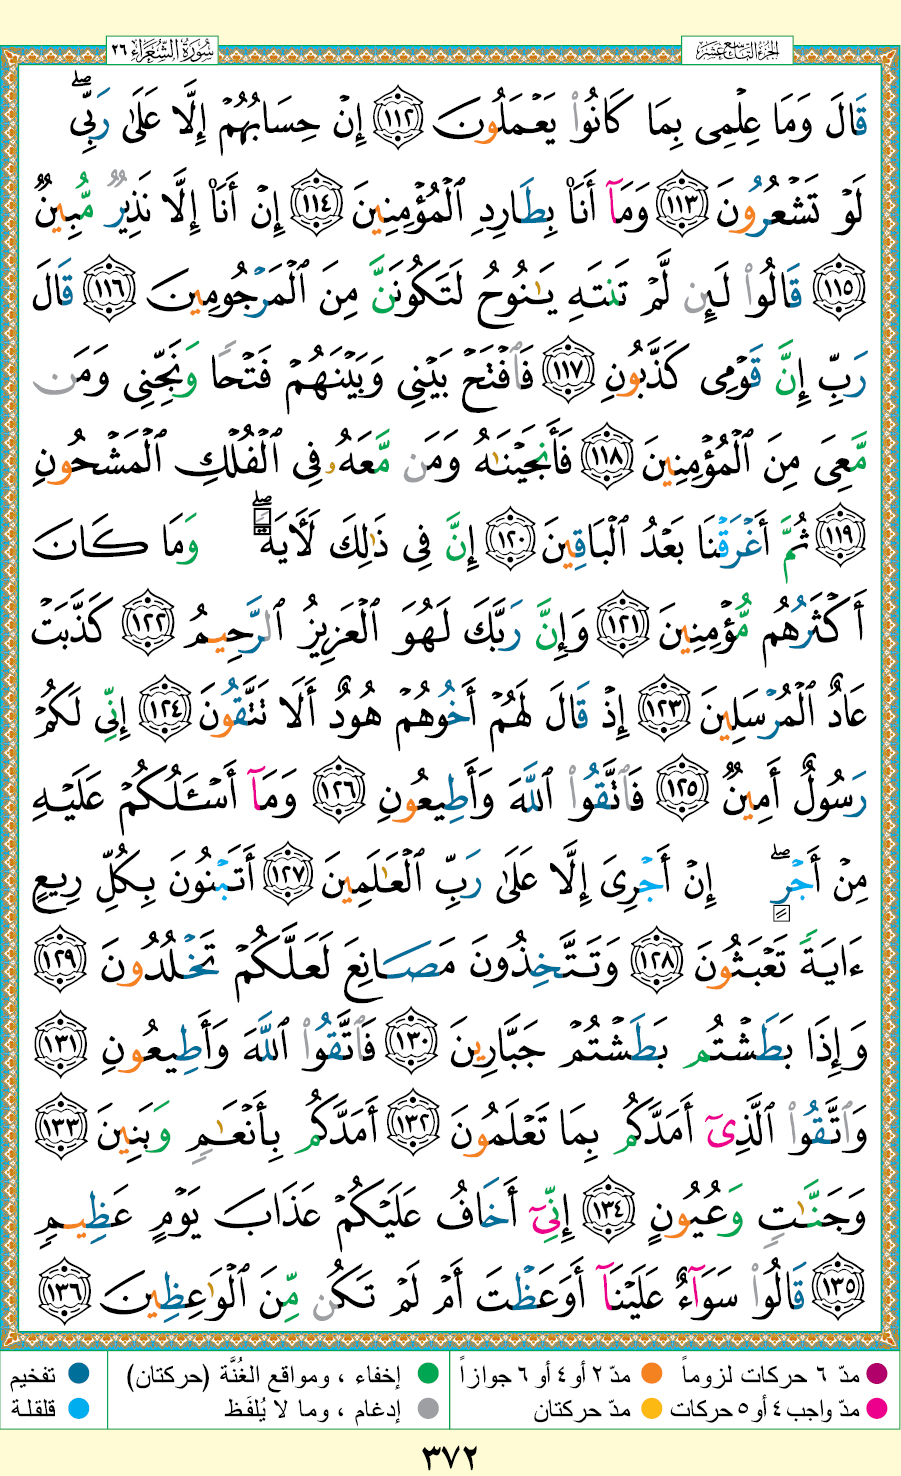 الجزء التاسع عشر
سُورَةُ الشُّعَرَاءِ ٢٦
قَالَ وَمَا عِلْمِى بِمَا كَانُوا۟ يَعْمَلُونَ ١١٢ إِنْ حِسَابُهُمْ إِلَّا عَلَىٰ رَبِّى ۖ
لَوْ تَشْعُرُونَ ١١٣ وَمَآ أَنَا۠ بِطَارِدِ ٱلْمُؤْمِنِينَ ١١٤ إِنْ أَنَا۠ إِلَّا نَذِيرٌ مُّبِينٌ
١١٥ قَالُوا۟ لَئِن لَّمْ تَنتَهِ يَـٰنُوحُ لَتَكُونَنَّ مِنَ ٱلْمَرْجُومِينَ ١١٦ قَالَ
رَبِّ إِنَّ قَوْمِى كَذَّبُونِ ١١٧ فَٱفْتَحْ بَيْنِى وَبَيْنَهُمْ فَتْحًا وَنَجِّنِى وَمَن
مَّعِىَ مِنَ ٱلْمُؤْمِنِينَ ١١٨ فَأَنجَيْنَـٰهُ وَمَن مَّعَهُۥ فِى ٱلْفُلْكِ ٱلْمَشْحُونِ
١١٩ ثُمَّ أَغْرَقْنَا بَعْدُ ٱلْبَاقِينَ ١٢٠ إِنَّ فِى ذَٰلِكَ لَـَٔايَةً ۖ وَمَا كَانَ
أَكْثَرُهُم مُّؤْمِنِينَ ١٢١ وَإِنَّ رَبَّكَ لَهُوَ ٱلْعَزِيزُ ٱلرَّحِيمُ ١٢٢ كَذَّبَتْ
عَادٌ ٱلْمُرْسَلِينَ ١٢٣ إِذْ قَالَ لَهُمْ أَخُوهُمْ هُودٌ أَلَا تَتَّقُونَ ١٢٤ إِنِّى لَكُمْ
رَسُولٌ أَمِينٌ ١٢٥ فَٱتَّقُوا۟ ٱللَّهَ وَأَطِيعُونِ ١٢٦ وَمَآ أَسْـَٔلُكُمْ عَلَيْهِ
مِنْ أَجْرٍ ۖ إِنْ أَجْرِىَ إِلَّا عَلَىٰ رَبِّ ٱلْعَـٰلَمِينَ ١٢٧ أَتَبْنُونَ بِكُلِّ رِيعٍ
ءَايَةً تَعْبَثُونَ ١٢٨ وَتَتَّخِذُونَ مَصَانِعَ لَعَلَّكُمْ تَخْلُدُونَ ١٢٩
وَإِذَا بَطَشْتُم بَطَشْتُمْ جَبَّارِينَ ١٣٠ فَٱتَّقُوا۟ ٱللَّهَ وَأَطِيعُونِ ١٣١
وَٱتَّقُوا۟ ٱلَّذِىٓ أَمَدَّكُم بِمَا تَعْلَمُونَ ١٣٢ أَمَدَّكُم بِأَنْعَـٰمٍ وَبَنِينَ ١٣٣
وَجَنَّـٰتٍ وَعُيُونٍ ١٣٤ إِنِّىٓ أَخَافُ عَلَيْكُمْ عَذَابَ يَوْمٍ عَظِيمٍ
١٣٥ قَالُوا۟ سَوَآءٌ عَلَيْنَآ أَوَعَظْتَ أَمْ لَمْ تَكُن مِّنَ ٱلْوَٰعِظِينَ ١٣٦
مدّ ٦ حركات لزوماً مدّ ٢ أو ٤ أو ٦ جوازاً إخفاء ، ومواقع الغُنَّة (حركتان) تفخيم
مدّ واجب ٤ أو ٥ حركات مدّ حركتان إدغام ، وما لا يُلفَظ قلقلة
٣٧٢